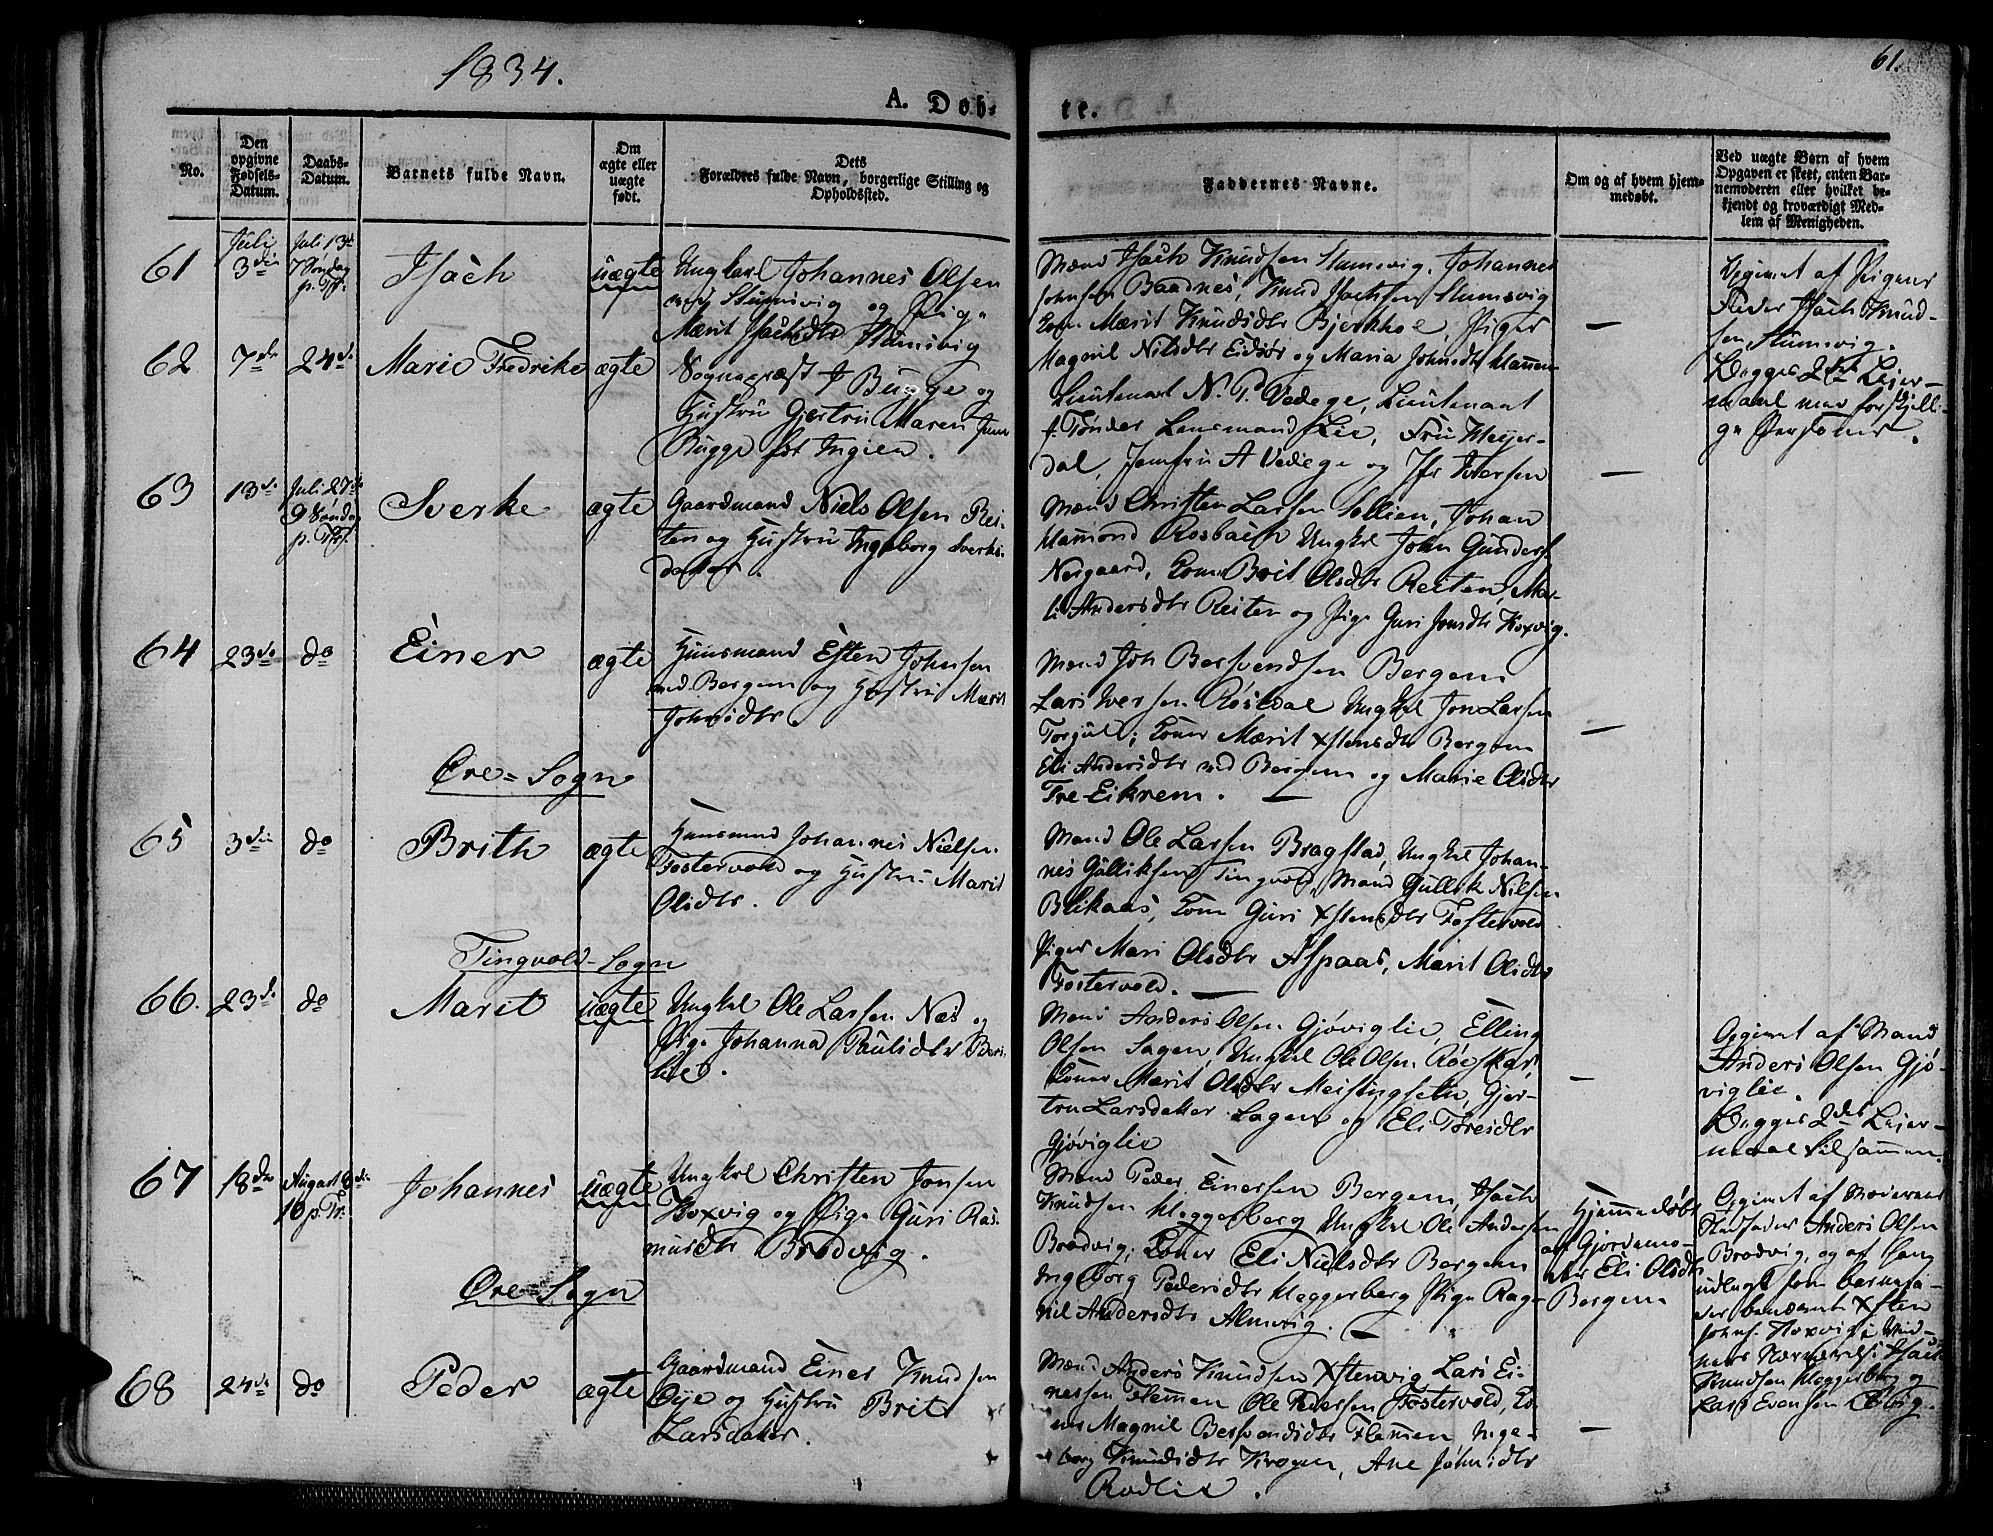 1834.
61.
A. Døb-
te.
No.
Den
opgivne
Fødsels-
Datum.
Daabs-
Datum.
Barnets fulde Navn.
Om
ægte eller
uægte
født.
Dets
Forældres fulde Navn, borgerlige Stilling og
Opholdssted.
Faddernes Navne.
Om og af hvem hjem-
medøbt.
Ved uægte Børn af hvem
Opgaven er skeet, enten Bar-
nemoderen eller hvilket be-
kjendt og troværdigt Med-
lem af Menigheden.
61
Juli
3die
Juli 13de
7 Søndag
p. Tr.
Isach
uægte
Ungkarl Johannes Olsen
Stumsvig og Pige
Marit Isachsdtr Stumsvig
Mænd Isach Knudsen Stumsvig, Johannes
Johnsen Baadnes, Knud Isachsen Stumsvig
Kone Marit Knudsdtr Bjerkhoe, Piger
Magnil Nilsdtr Eidsør og Maria Johnsdtr
—
Opgivet af Pigens
Fader Isach Knud-
sen Stumsvig.
Begges 2det Leier-
maal med forskjelli-
ge Personer.
62
7de
24de
Marie Fredrike
ægte
Sognepræst J Bugge og
Hustru Gjertru Maren
Bugge fød Ingier.
Lieutenant N. P. Vedege, Lieutenant
J. Tønder Lensmand Lie, Fru Meyer-
dal, Jomfru A Vedege og Jfr Iversen
—
63
13de
Juli 27de
9 Søndag
p. Tr.
Sverke
ægte
Gaardmand Niels Olsen Rei-
ten og Hustru Ingeborg Sverks-
datter.
Mænd Christen Larsen Sollien, Johan
Hamond Rosbach Ungkl John Gunders
Norgaard, Kone Brit Olsdtr Reiten, Ma-
li Andersdtr Reiten og Pige Guri Jonsdtr Koxvig.
64
23de
do
Einer
ægte
Huusmand Esten Johnsen
ned. Bergem og Hustru Marit
Johnsdtr.
Mænd Joh Bersvendsen Bergem
Lars Iversen Røsedal Ungkl Jon Larsen
Torjul; Koner Marit Xstensdtr Bergem
Eli Andersdtr ned Bergem og Marie Olsdtr
Tre-Eikrem. —
—
Øre-Sogn
65
3die
do
Brith
ægte
Huusmand Johannes Nielsen
Fostervold og Hustru Marit
Olsdtr.
Mænd Ole Larsen Bragstad, Ungkl Johan-
nes Gulliksen Tingvold, Mand Gullik Nilsen
Blikaas, Kone Guri Xstensdtr Fostervold
Piger Mari Olsdtr Aspaas, Marit Olsdtr
Fostervold. —
Tingvold-Sogn
66.
23de
do
Maret
uægte
Ungkl Ole Larsen Næs og
Pige Johanna Paulsdtr
Mænd Anders Olsen Gjøviglie, Elling
Olsen Sagen, Ungkl Ole Olsen Røeskar
Koner Marit Olsdtr Meisingsetn, Gjer-
tru Larsdatter Sagen og Eli Toresdtr
Gjøviglie
—
Opgivet af Mand
Anders Olsen Gjø-
viglie.
Begges 2det Leier-
maal tilsammen.
67
18de
August
10 p. Tr.
Johannes
uægte
Ungkl Christen Jonsen
Koxvig og Pige Guri Ras-
musdtr Brødvig.
Mænd Peder Einersen Bergem, Isach
Knudsen Heggerberg Ungkl Ole Andersen
Brødvig; Koner Eli Nielsdtr Bergem
Ingeborg Pedersdtr Heggerberg Pige Rag-
nil Andersdtr Almvig. —
Hjemmedøbt
af Gjordemo-
der Eli Olsdtr
Bergem
Opgivet af Moderens
Anders Olsen
Brødvig, og af ham
udlagt som barnefa-
der benævnte Xsten
Johns. Koxvig i Vid-
ners Nærværelse Isach
Knudsen Heggerberg og
Lars Evensen
Øre-Sogn
68
24de
do
Peder
ægte
Gaardmand Einer Knudsen
Øye og Hustru Brit
Larsdatter.
Mænd Anders Knudsen Xstenvig Lars Ei-
nersen Flemmen Ole Pedersen Fostervold, Ko-
ner Magnil Bersvendsdtr Flemmen Inge-
borg Knudsdtr Kroyen, Ane Johnsdtr
Rødlie.
—